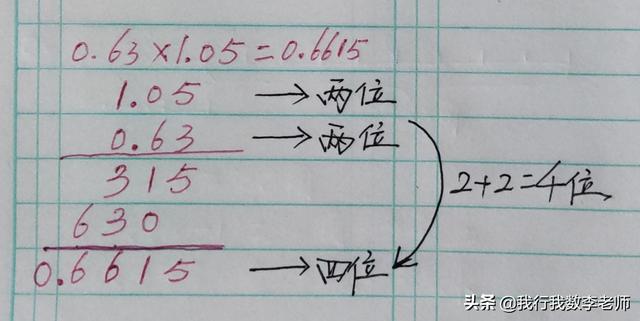 0.63×1.05=0.6615
1.05 → 两位
0.63 → 两位
315
630
2+2=4位
0.6615 → 四位
头条 @我行我数李老师